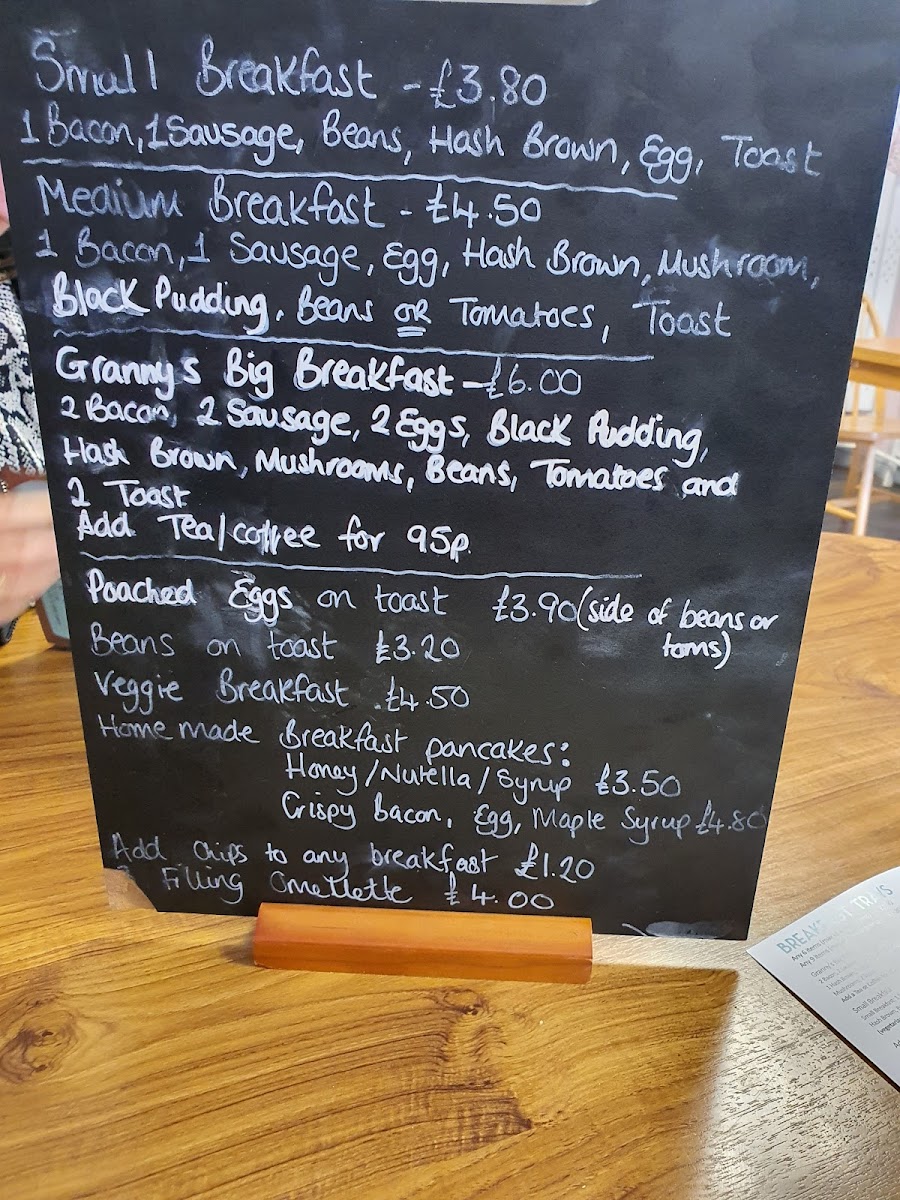 Small Breakfast - £3.80
1 Bacon, 1 Sausage, Beans, Hash Brown, Egg, Toast
Medium Breakfast - £4.50
1 Bacon, 1 Sausage, Egg, Hash Brown, Mushroom,
Black Pudding, Beans OR Tomatoes, Toast
Granny's Big Breakfast - £6.00
2 Bacon, 2 Sausage, 2 Eggs, Black Pudding,
Hash Brown, Mushrooms, Beans, Tomatoes and
2 Toast
Add Tea/coffee for 95p.
Poached Eggs on toast £3.90 (side of beans or
toms)
Beans on toast £3.20
Veggie Breakfast £4.50
Home made Breakfast pancakes:
Honey/Nutella/Syrup £3.50
Crispy bacon, Egg, Maple Syrup £4.80
Add chips to any breakfast £1.20
Filling Omettette £4.00
Small Breakfast